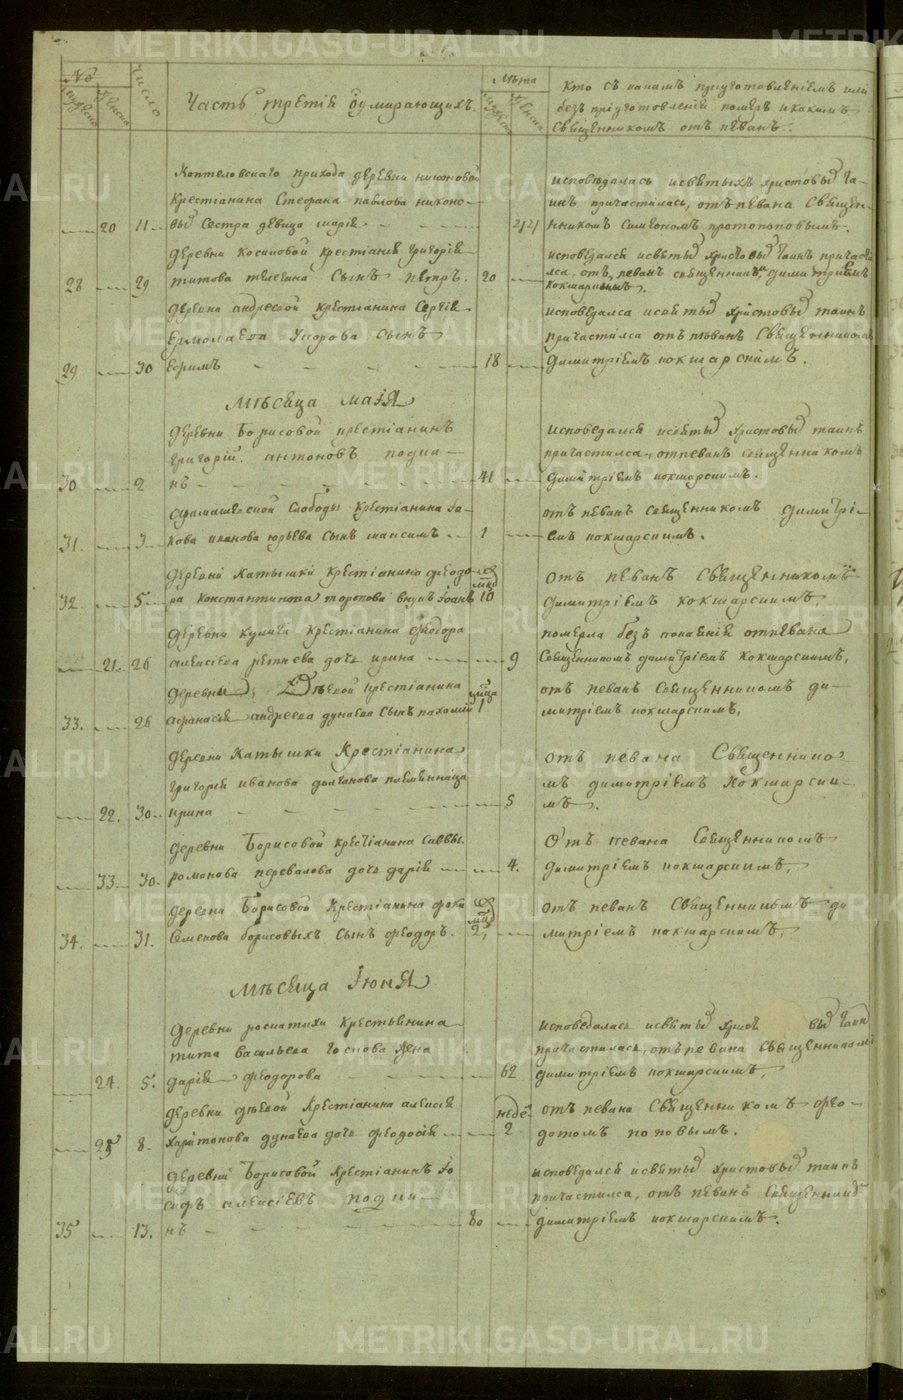 №
Число
Часть третія оумирающихъ.
Лѣта
Кто съ какимъ приуготовленіемъ или
безъ пріуготовленія померъ и какимъ
Священникомъ отпеванъ.
Коптеловскаго прихода деревни никоновой
Крестіанина Стефана павлова никоно-
20 11 вы сестра девица марія 24
исповѣдалась исвятыхъ христовыхъ та-
инъ причастилась, отъпевана Священ-
никомъ Симеономъ протопоповымъ.
деревни Косиковой крестіаня григорія
28 29 титова телегина Сынъ петръ. 20
исповедался исвятых христовых таинъ причасти
лса отъ певанъ священникъ димитріемъ
кокшарскимъ.
деревни андреевой крестіанина Сергія
Ермолаева Сынъ
29 30 Ефимъ 18
исповедалса исвятых христовых таинъ
причастилса отъпеванъ Священникомъ
Димитріемъ кокшарскимъ.
Мѣсяца маія
деревни Борисовой крестіанинъ
григорій антоновъ подки-
30 2 нъ 41
исповедался исвятых христовых таинъ
причастился, отпеванъ священникомъ
димитріемъ кокшарскимъ.
слободы крестіанина Іа-
31. 3 кова иванова юрьева сынъ максимъ 1
отъ певанъ священникомъ димитрі-
емъ кокшарскимъ.
деревни Катышки Крестіанина феодо-
32. 5 ра Константинова торопова внукъ Іоанъ 10
отъ певанъ Священникомъ
димитріемъ кокшарскимъ,
деревни кулиги Крестіанина феодора
21. 26 алексіева ретнева дочь ирина 9
померла безъ покаянія отпевана
Священникомъ димитріемъ Кокшарскимъ,
деревни Дѣевой крестіанина
33. 26 афанасія андреева дунаева Сынъ пахомій 1
отъ певанъ Священникомъ ди-
митріемъ кокшарскимъ,
деревни Катышки Крестіанина
григорія иванова долганова племянница
22. 30 ирина 5
отъ певана Священнико-
мъ димитріемъ Кокшарски-
мъ.
деревни Борисовой крестіанина саввы
33 30 романова перевалова дочь дарія 4.
Отъ певана Священникомъ
димитріемъ кокшарскимъ,
деревни Борисовой Крестіанина фоки
34. 31. Семенова борисовыхъ Сынъ феодоръ. 2,
отъ певанъ Священникомъ ди
митріемъ кокшарскимъ.
Мѣсяца Іюня
деревни роскатихи Крестьянина
тита васильева госкова жена
24. 5. дарія феодорова 62
исповедалась исвятых христовых таинъ
причастилась, отъпевана Священникомъ
димитріемъ кокшарскимъ,
деревни дѣевой Крестіанина алексія
25 8. харитонова дунаева дочь феодосія недѣ. 2
отъ певана Священникомъ фео-
дотомъ поповымъ.
деревни Борисовой Крестіанинъ Іо
сифъ алексіевъ подки-
35 13. нъ 80
исповедался исвятых христовых таинъ
причастилса, отъ певанъ Священником
димитріемъ кокшарскимъ.
METRIKI.GASO-URAL.RU